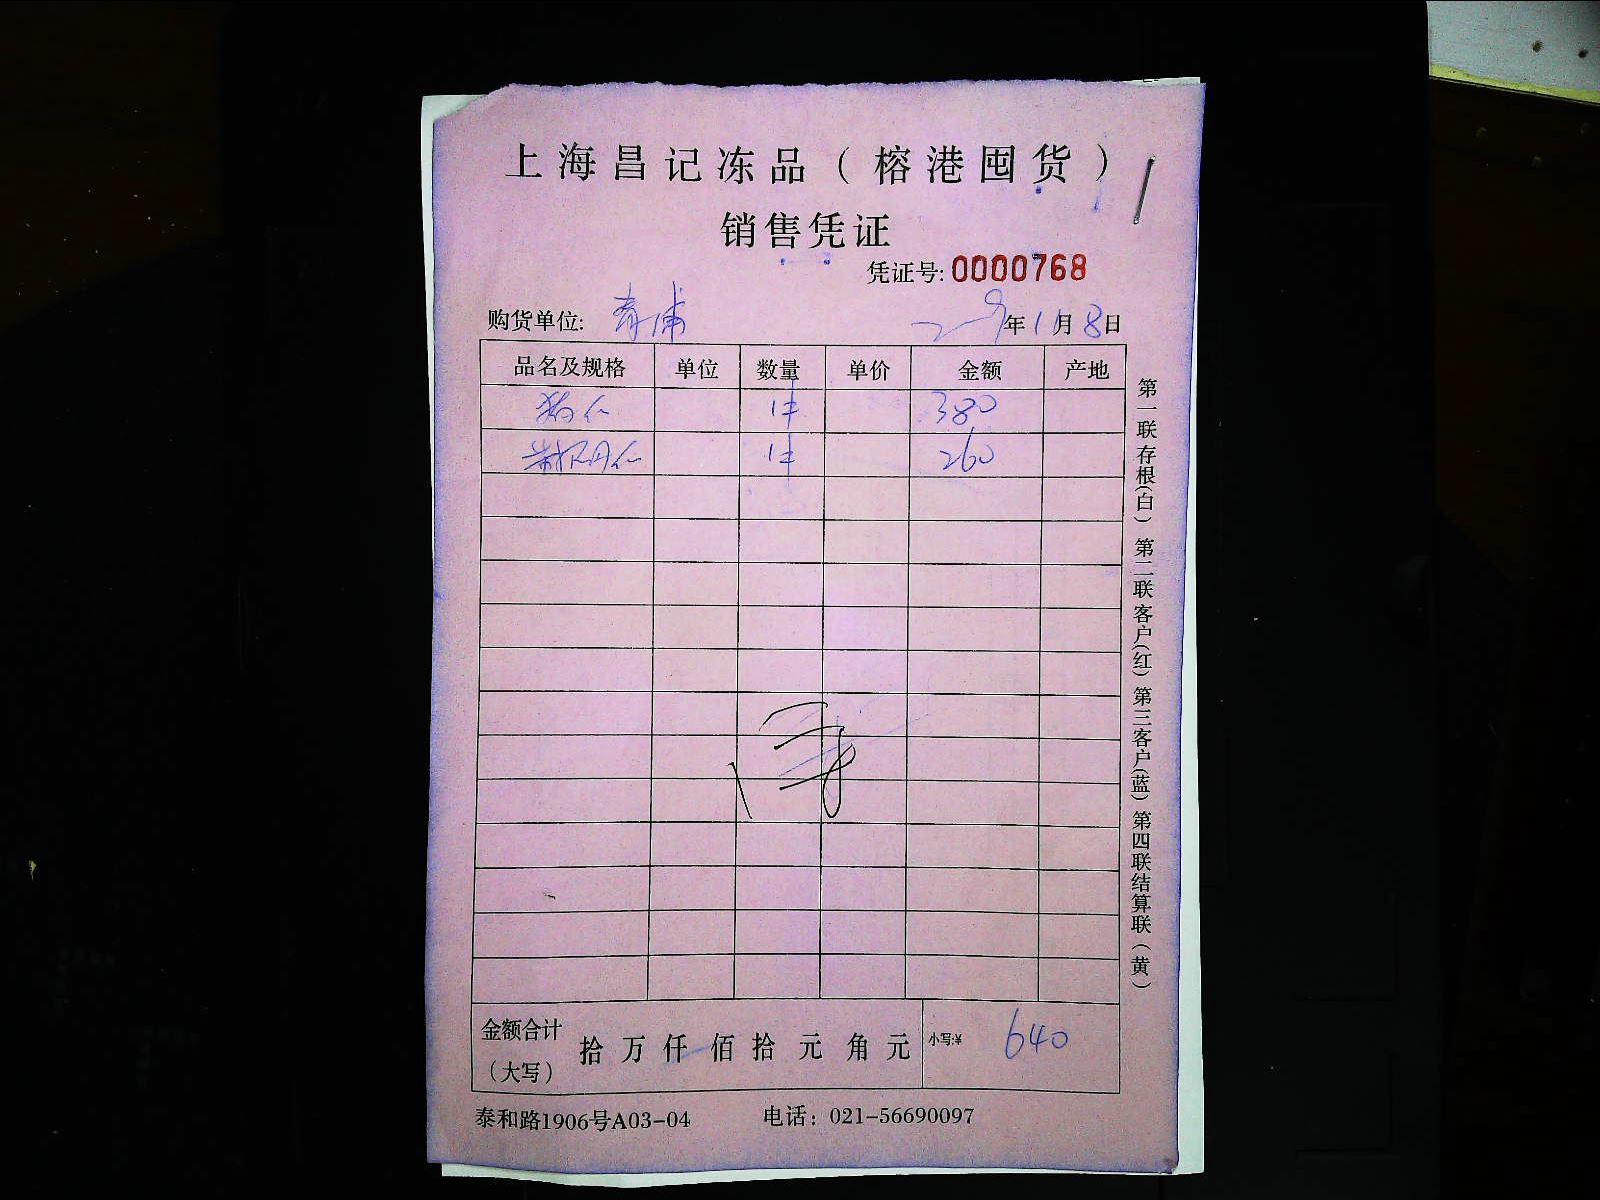 上海昌记冻品（榕港囤货）
销售凭证
凭证号: 0000768
购货单位: 青浦 年 1月 8日
品名及规格 单位 数量 单价 金额 产地
1件 380
1件 260
金额合计（大写） 拾 万 仟 佰 拾 元 角 元 小写:¥ 640
泰和路1906号A03-04 电话：021-56690097
第一联存根(白) 第二联客户(红) 第三客户(蓝) 第四联结算联（黄）